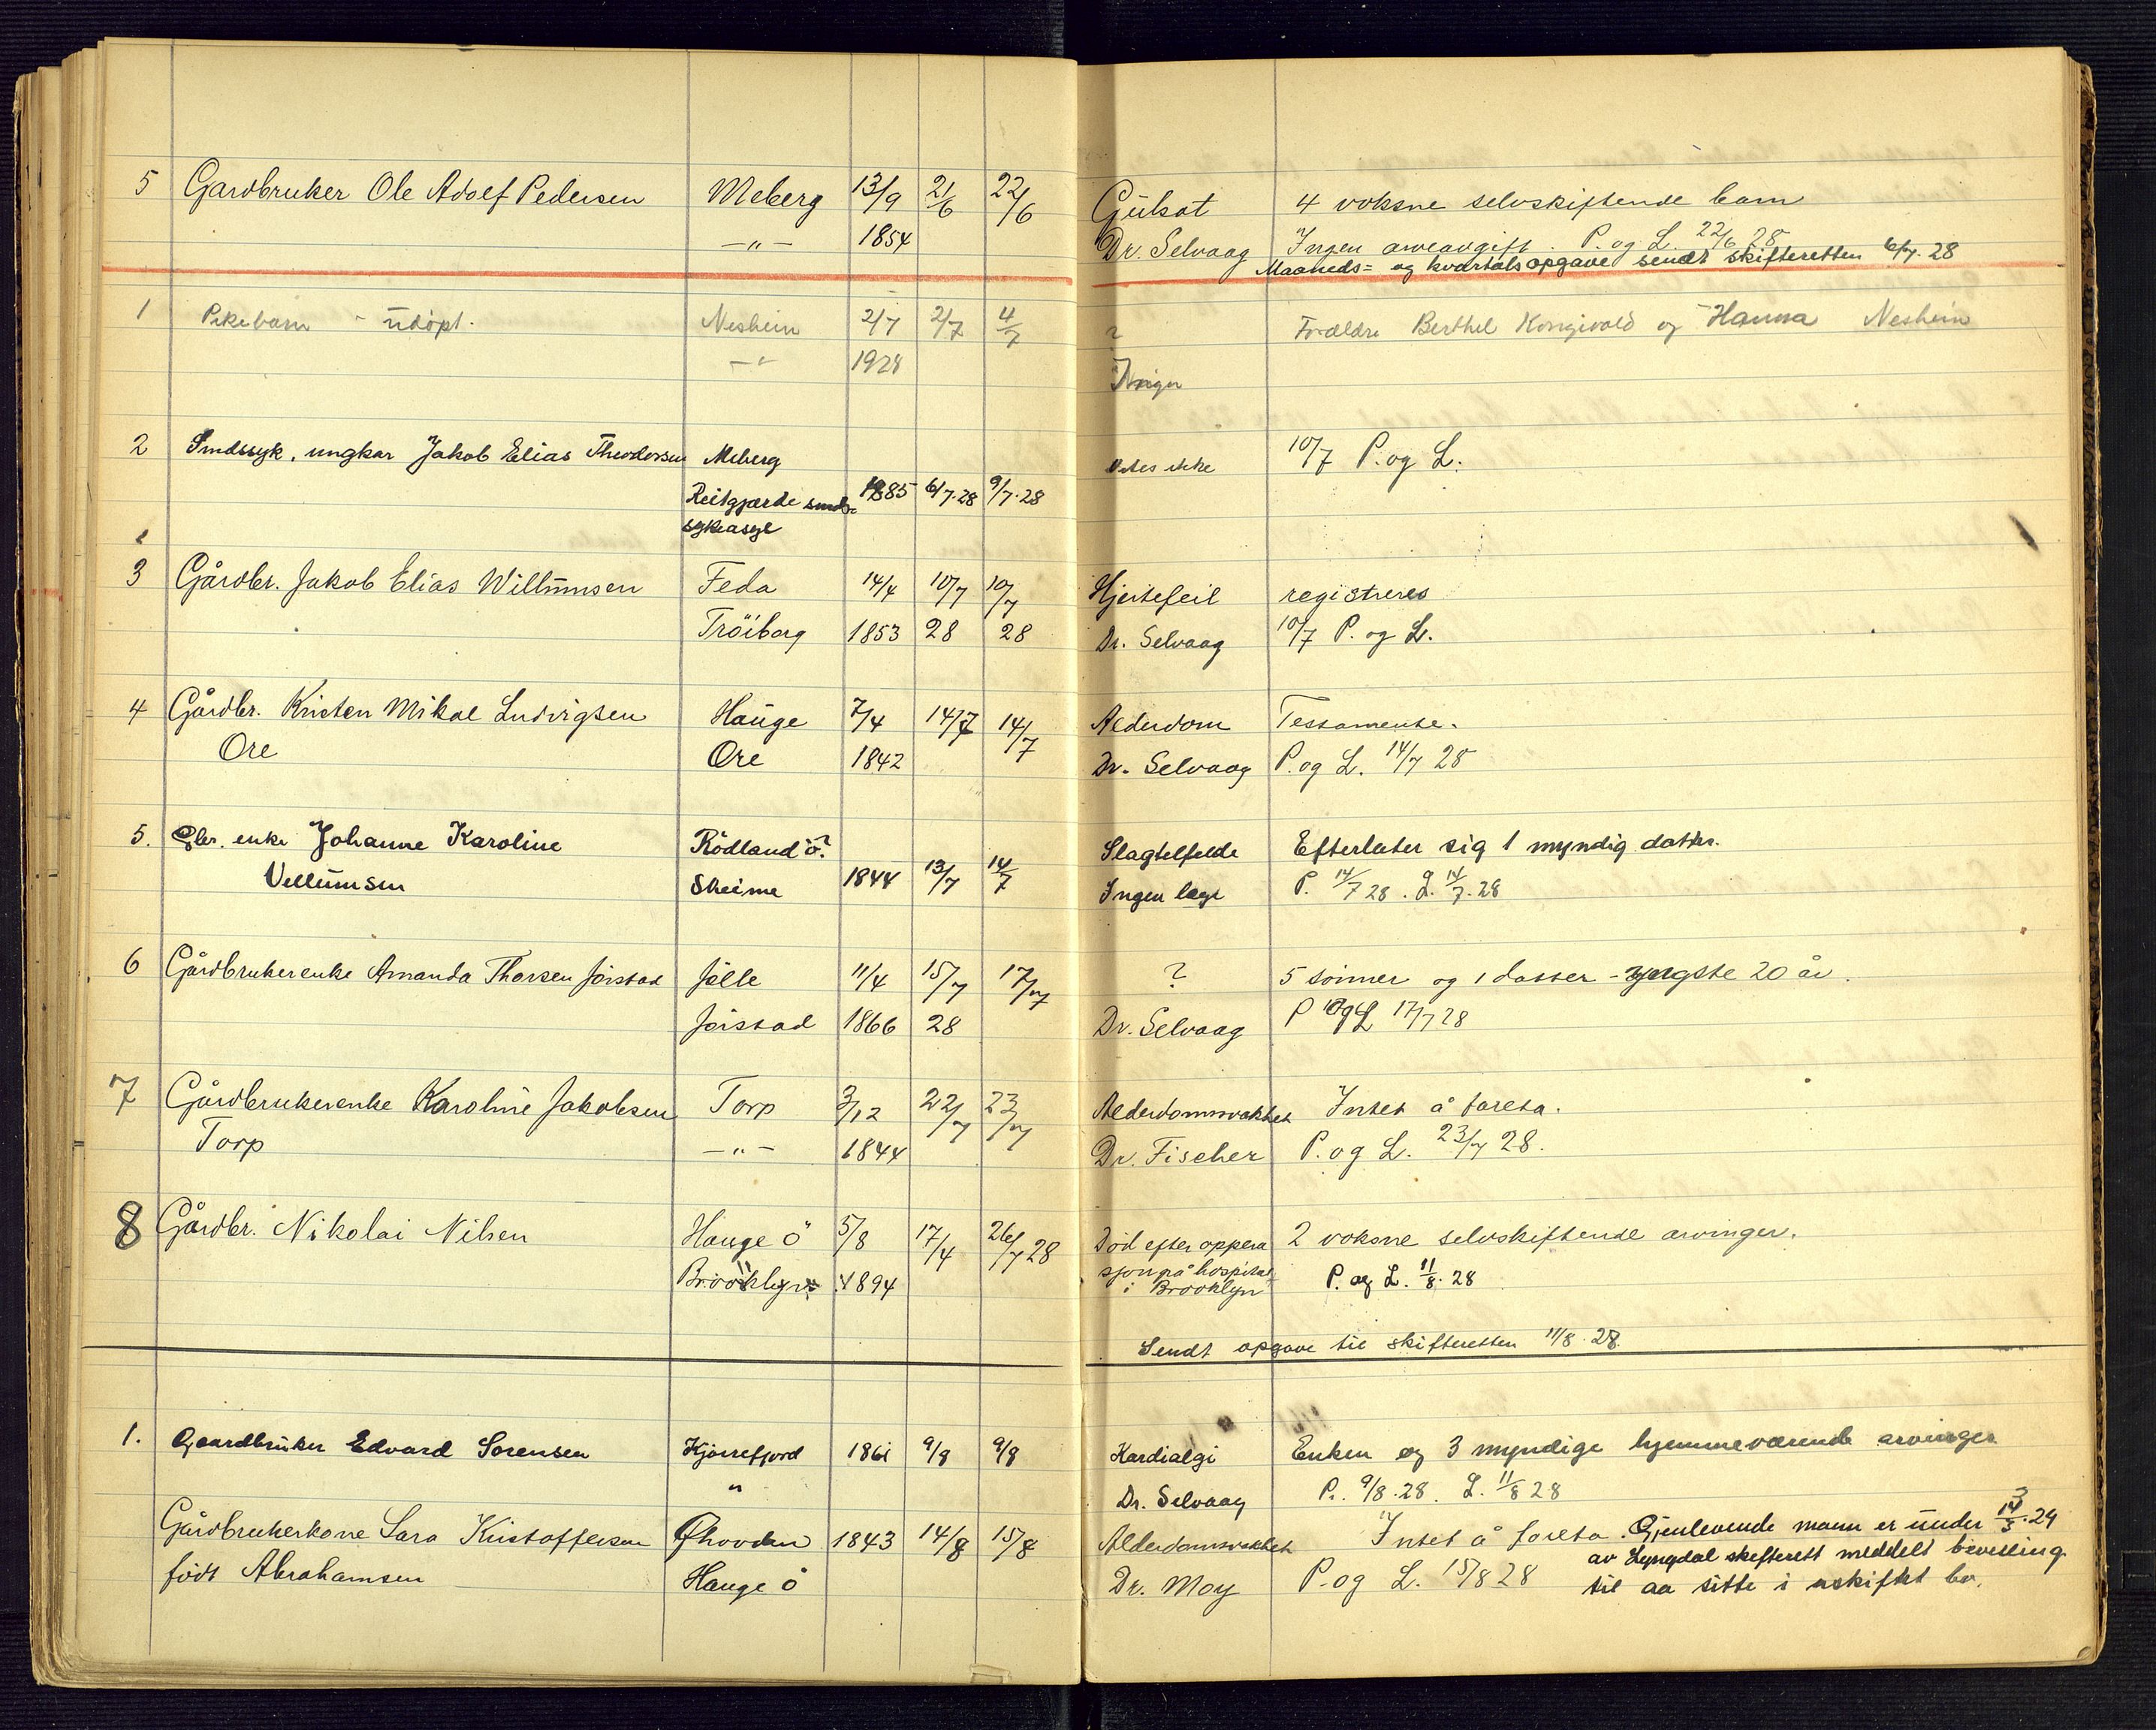 5 Gardbruker Ole Adolf Pedersen Meberg 13/9 21/6 22/6 Gulsot 4 voksne selvskiftende barn
—"— 1854 Dr. Selvaag Ingen arveavgift. P. og L. 22/6 28
Maaneds= og kvartalsopgave sendt skifteretten 6/7. 28
1 Pikebarn - udöpt. Neshein 2/7 2/7 4/7 ? Forældre Berthel Kongevold og Hanna Neshein
—"— 1928 Ingen
2 Sindssyk, ungkar Jakob Elias Theodorsen Meberg Vites ikke 10/7 P. og L.
Reitgjærde sinds= 1885 6/7.28 9/7.28
sykeasyl
3 Gårdbr. Jakob Elias Willumsen Feda 14/4 10/7 10/7 Hjertefeil registreres
Tröiborg 1853 28 28 Dr. Selvaag 10/7 P. og L.
4 Gårdbr. Kristen Mikal Ludvigsen Hauge 7/4 14/7 14/7 Alderdom Testamente.
Ore Ore 1842 Dr. Selvaag P. og L. 14/7 28
5. Gbr. enke Johanne Karoline Rödland ö? Slagtilfelde Efterlater sig 1 myndig datter.
Vellumsen Skeime 1844 13/7 14/7 Ingen læge P. 14/7 28. L. 14/7. 28
6 Gårdbrukerenke Amanda Thorsen Jörstad Jölle 11/4 15/7 17/7 ? 5 sönner og 1 datter - yngste 20 år.
Jörstad 1866 28 Dr. Selvaag P og L 17/7 28
7 Gårdbrukerenke Karoline Jakobsen Torp 3/12 22/7 23/7 Alderdomsvakhet Intet å foreta.
Torp —"— 1844 Dr. Fischer P. og L. 23/7 28.
8 Gårdbr. Nikolai Nilsen Hauge ö 5/8 17/4 26/7 28 Död efter oppera 2 voksne selvskiftende arvinger.
Brooklyn 1894 sjon på hospital P. og L. 11/8. 28
i Brooklyn
Sendt opgave til skifteretten 11/8. 28.
1. Gaardbruker Edvard Sorensen Kjörrefjord 1861 9/8 9/8 Kardialgi Enken og 3 myndige hjemmeværende arvinger
" Dr. Selvaag P. 9/8. 28. L. 11/8 28
Gårdbrukerkone Sara Kristoffersen Øhovden 1843 14/8 15/8 Alderdomsvakhet Intet å foreta. Gjenlevende mann er under 14/3. 29
av Lyngdal skifterett meddelt bevilling
födt Abrahamsen Hauge ö Dr. Moy P. og L. 15/8 28 til aa sitte i uskiftet bo.